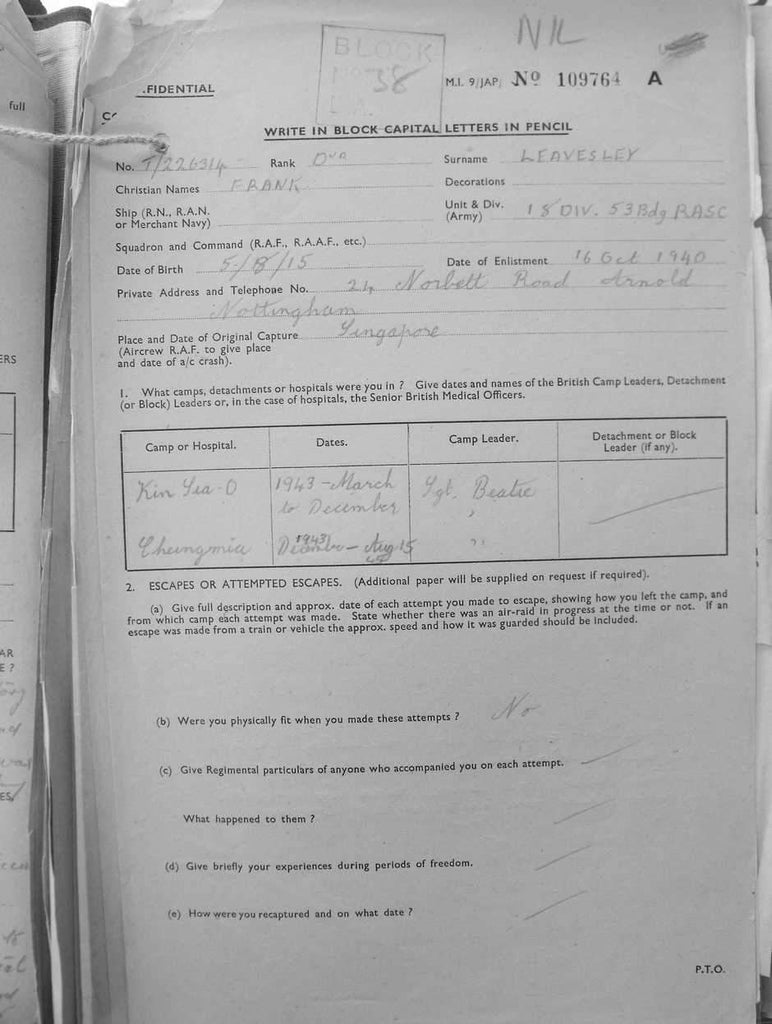 NIL
BLOCK
38
M.I. 9/JAP. No 109764 A
.FIDENTIAL
full
WRITE IN BLOCK CAPITAL LETTERS IN PENCIL
No. T/226314 Rank DVR Surname LEAVESLEY
Christian Names FRANK Decorations
Ship (R.N., R.A.N. or Merchant Navy)
Unit & Div. (Army) 18 DIV. 53 Bdg RASC
Squadron and Command (R.A.F., R.A.A.F., etc.)
Date of Birth 5/8/15 Date of Enlistment 16 Oct 1940
Private Address and Telephone No. 24 Norbett Road Arnold
Nottingham
Place and Date of Original Capture Singapore
(Aircrew R.A.F. to give place
and date of a/c crash).
1. What camps, detachments or hospitals were you in ? Give dates and names of the British Camp Leaders, Detachment
(or Block) Leaders or, in the case of hospitals, the Senior British Medical Officers.
Camp or Hospital. Dates. Camp Leader. Detachment or Block Leader (if any).
Kin Sea-O 1943 - March to December Sgt. Beatie
1943 - Aug 15 "
2. ESCAPES OR ATTEMPTED ESCAPES. (Additional paper will be supplied on request if required).
(a) Give full description and approx. date of each attempt you made to escape, showing how you left the camp, and
from which camp each attempt was made. State whether there was an air-raid in progress at the time or not. If an
escape was made from a train or vehicle the approx. speed and how it was guarded should be included.
(b) Were you physically fit when you made these attempts ? No
(c) Give Regimental particulars of anyone who accompanied you on each attempt.
What happened to them ?
(d) Give briefly your experiences during periods of freedom.
(e) How were you recaptured and on what date ?
P.T.O.